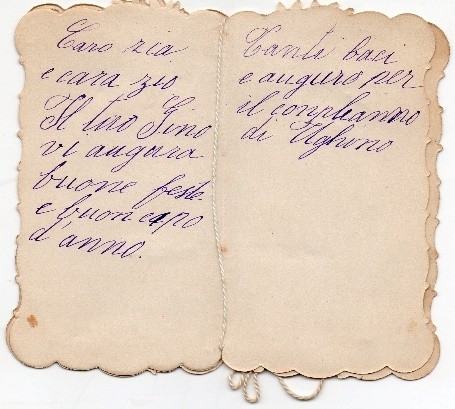 Caro zia
e cara zio
Il tuo Gino
vi augura
buone feste
e buon capo
d'anno.
Tanti baci
e auguro per
il conpleanno
di Ughono